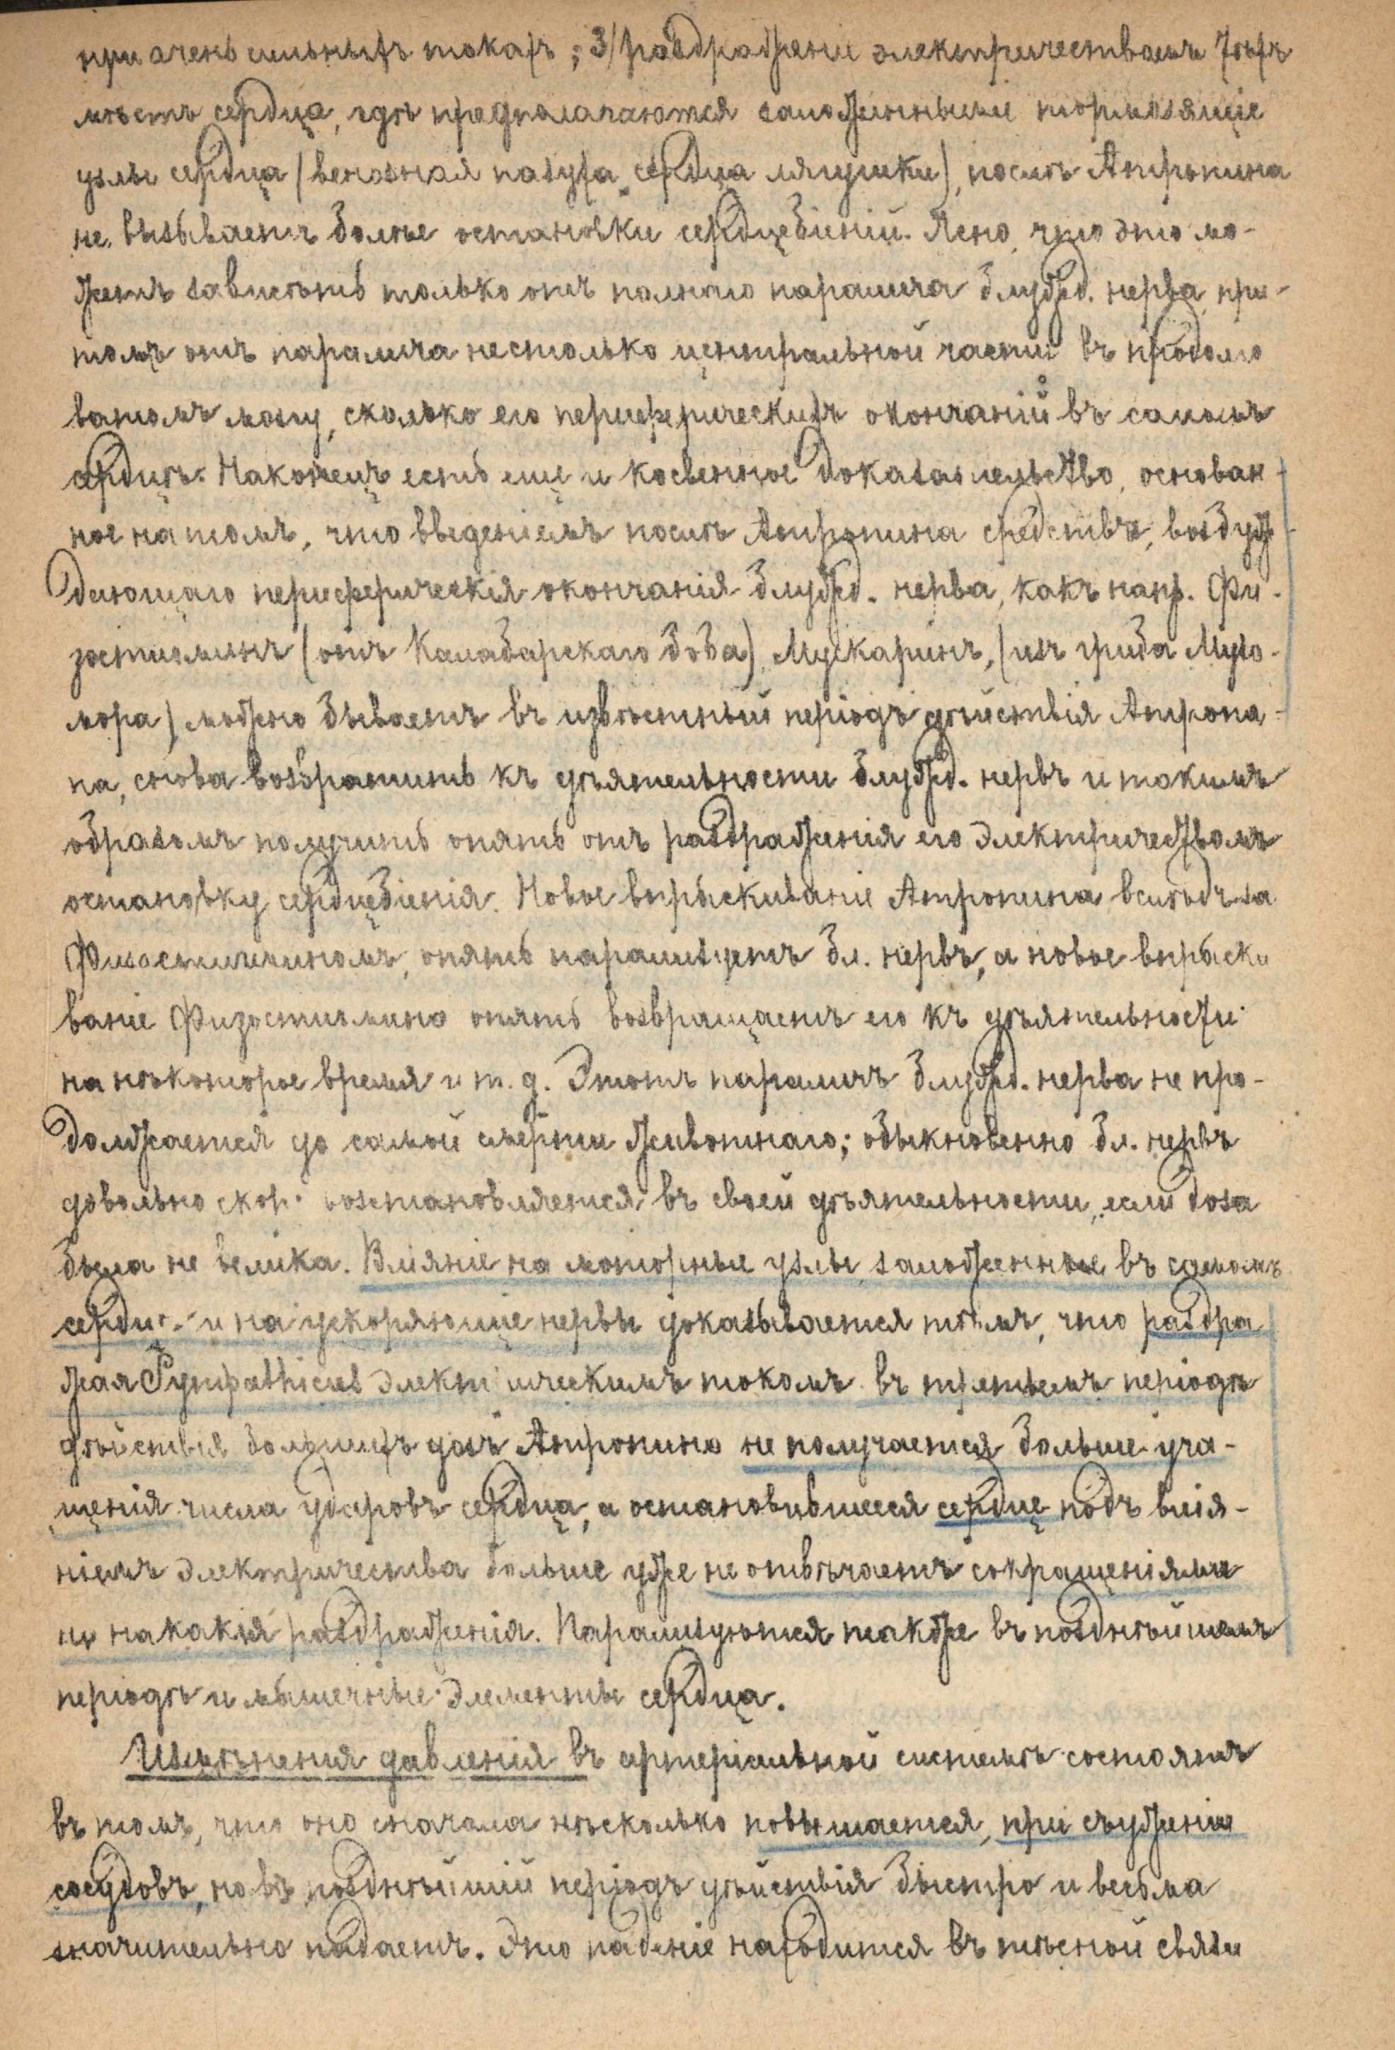 при очень сильныхъ токахъ; 3/ раздраженіе электричествомъ тѣхъ
мѣстъ сердца, гдѣ предполагаются заложенными тормозящіе
узлы сердца (венозная пазуха сердца лягушки), послѣ Атропина
не вызываетъ болѣе остановки сердцебіеній. Ясно, что это мо-
жетъ зависѣть только отъ полнаго паралича блужд. нерва, при-
томъ отъ паралича нестолько центральной части въ продолго
ватомъ мозгу, сколько его периферическихъ окончаній въ самомъ
сердцѣ. Наконецъ есть еще и косвенное доказательство, основан-
ное на томъ, что введеніемъ послѣ Атропина средствъ, возбуж-
дающаго периферическія окончанія блужд. нерва, какъ напр. Фи-
зостигминъ (отъ Калабарскаго боба), Мускаринъ, (изъ гриба Мухо-
мора) можно бываетъ въ извѣстный періодъ дѣйствія Атропи-
на, снова возвратить къ дѣятельности блужд. нервъ и такимъ
образомъ получить опять отъ раздраженія его электричествомъ
остановку сердцебіенія. Новое впрыскиваніе Атропина вслѣдъ за
Физостигминомъ, опять парализуетъ бл. нервъ, а новое впрыски
ваніе Физостигмина опять возвращаетъ его къ дѣятельности
на нѣкоторое время и т. д. Этотъ параличъ блужд. нерва не про-
должается до самой смерти животнаго; обыкновенно бл. нервъ
довольно скор. возстановляется въ своей дѣятельности, если доза
была не велика. Вліяніе на моторные узлы, заложенные въ самомъ
сердцѣ и на ускоряющіе нервы доказывается тѣмъ, что раздра
жая Sympathicus электрическимъ токомъ въ третьемъ періодѣ
дѣйствія большихъ дозъ Атропина не получается больше уча-
щенія числа ударовъ сердца, а остановившееся сердце подъ влія-
ніемъ электричества больше уже не отвѣчаетъ сокращеніями
ни на какія раздраженія. Парализуются также въ позднѣйшемъ
періодѣ и мышечные элементы сердца.
Измѣненія давленія въ артеріальной системѣ состоятъ
въ томъ, что оно сначала нѣсколько повышается, при съуженіи
сосудовъ, но въ позднѣйшій періодъ дѣйствія быстро и весьма
значительно падаетъ. Это паденіе находится въ тѣсной связи